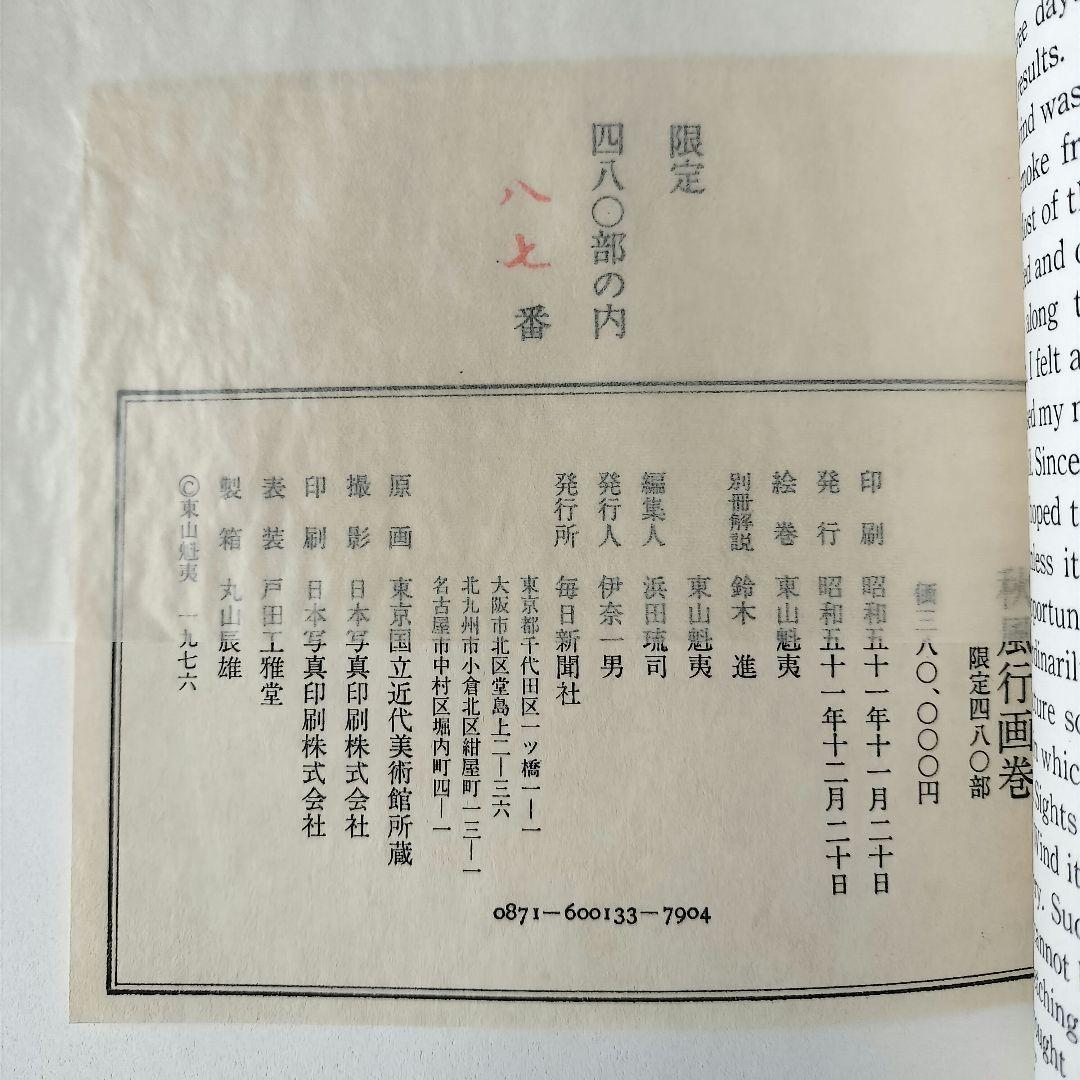 限定
四八〇部の内
八七番
秋風行画巻
限定四八〇部
価三八〇、〇〇〇円
印刷 昭和五十一年十一月二十日
発行 昭和五十一年十二月二十日
絵巻 東山魁夷
別冊解説 鈴木 進
東山魁夷
編集人 浜田琉司
発行人 伊奈一男
発行所 毎日新聞社
東京都千代田区一ッ橋一―一
大阪市北区堂島上二―三六
北九州市小倉北区紺屋町一三―一
名古屋市中村区堀内町四―一
原画 東京国立近代美術館所蔵
撮影 日本写真印刷株式会社
印刷 日本写真印刷株式会社
表装 戸田工雅堂
製箱 丸山辰雄
©東山魁夷 一九七六
0871―600133―7904
days
results.
was
smoke
of
and
along t
I felt a
my
Since
t
it
which
Sights
Wind it